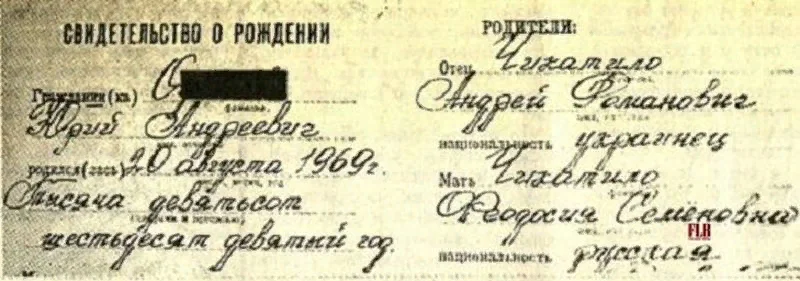 СВИДЕТЕЛЬСТВО О РОЖДЕНИИ
Гражданин(ка) О
фамилия
Юрий Андреевич
родился(лась) 20 августа 1969г.
Тысяча девятьсот
шестьдесят девятый год
РОДИТЕЛИ:
Отец Чикатило
Андрей Романович
национальность украинец
Мать Чикатило
Феодосия Семеновна
FLB
национальность русская